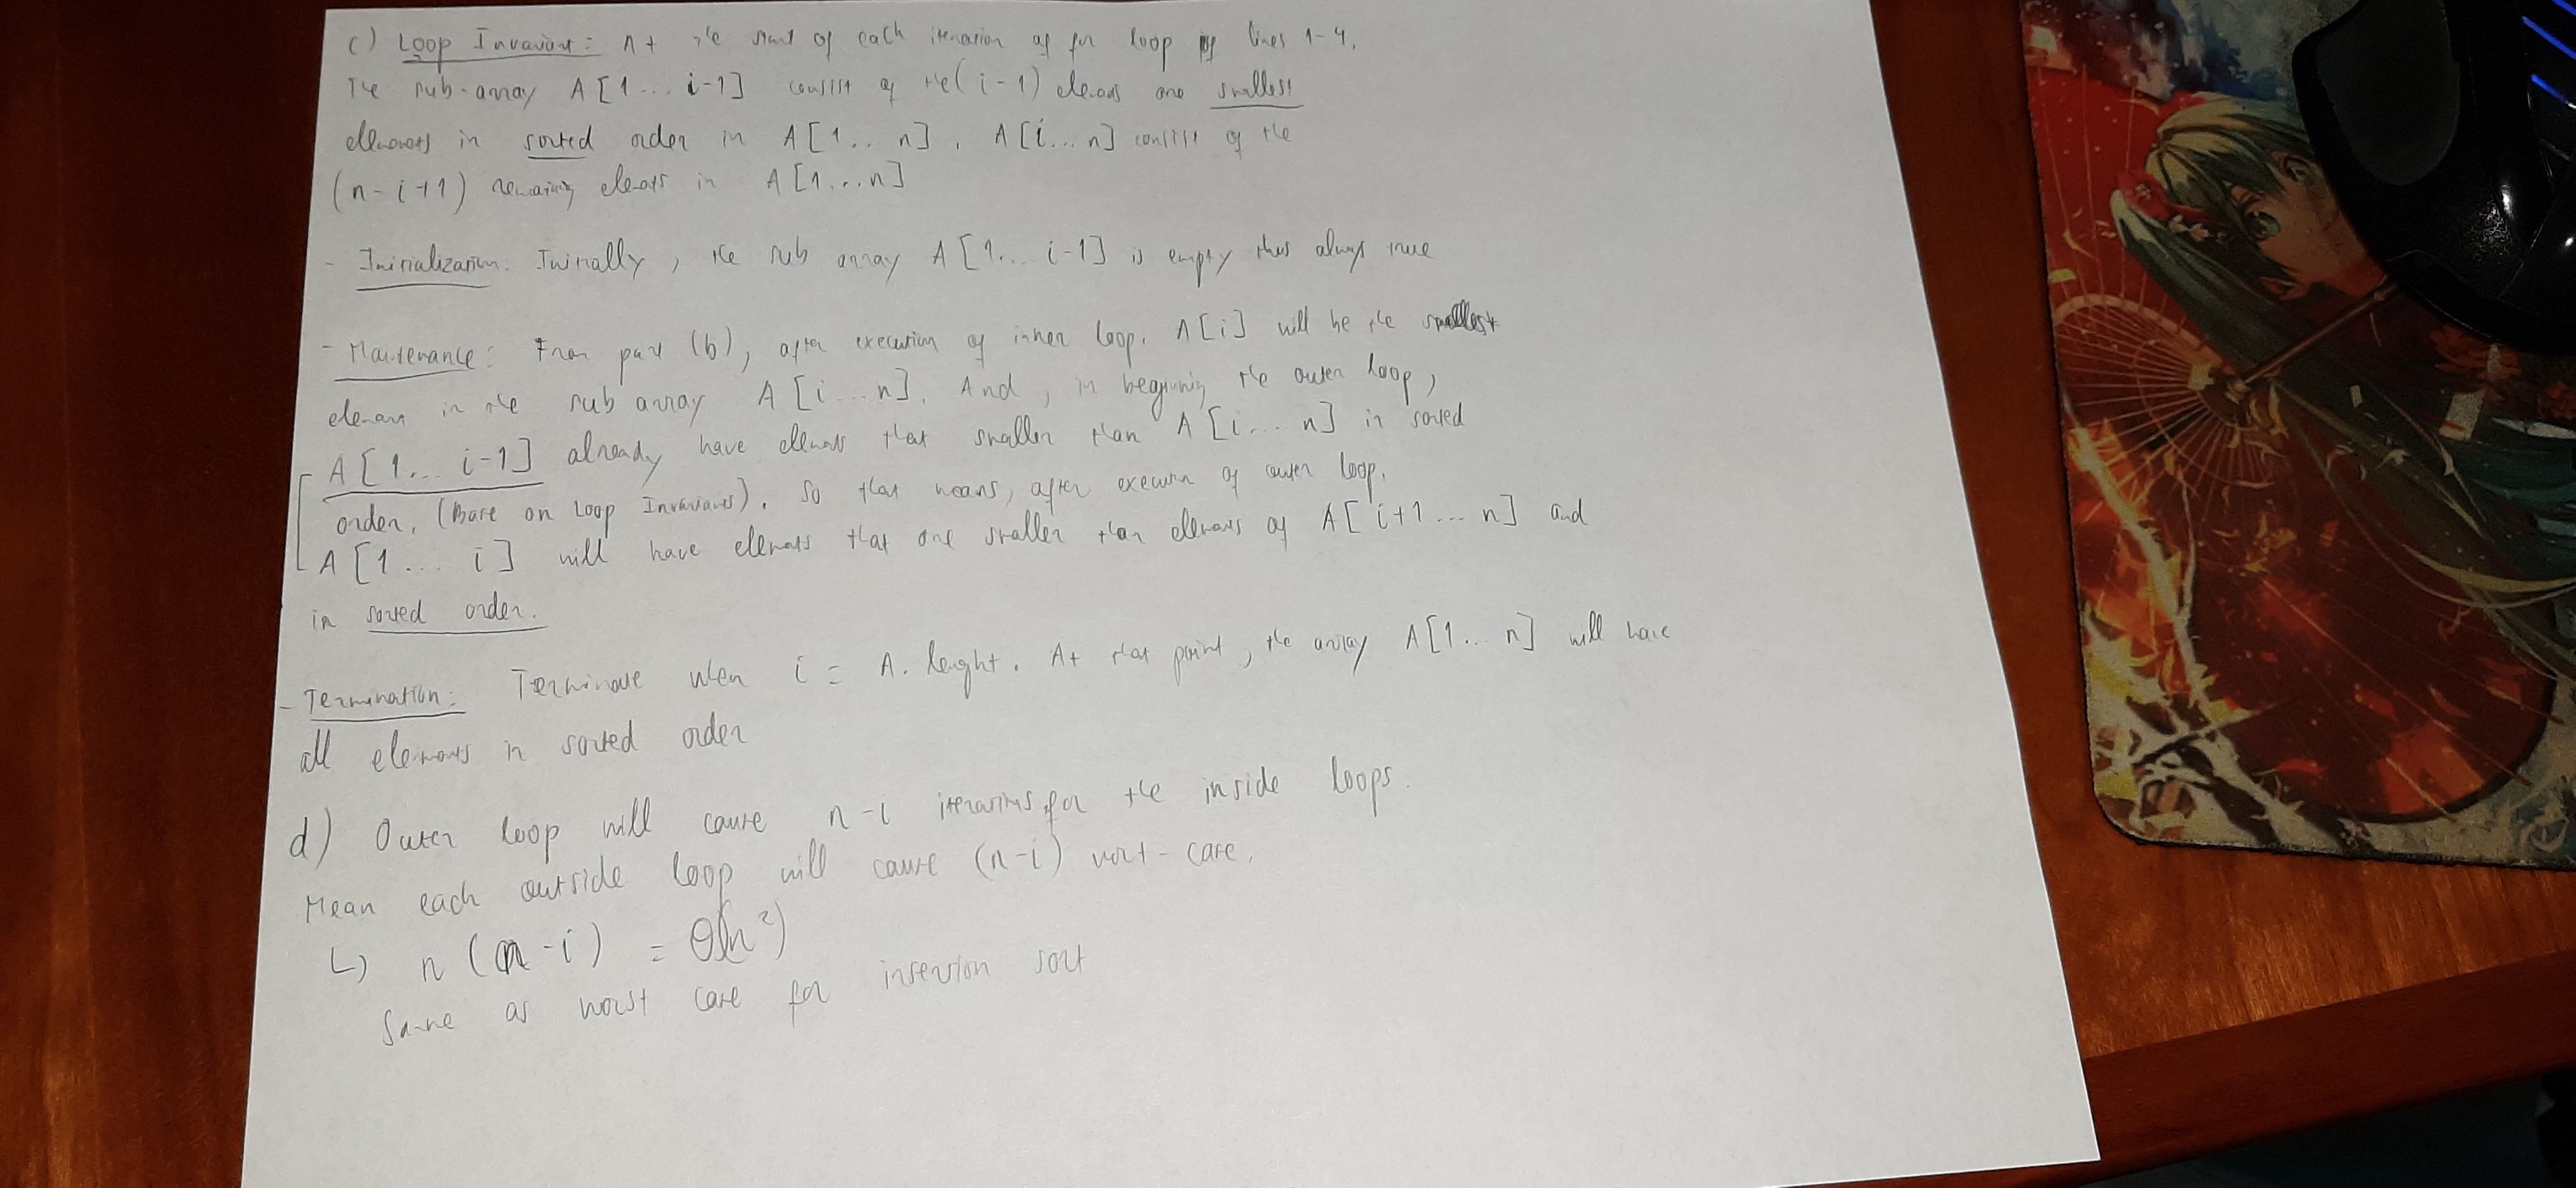 c) Loop Invariant: At the start of each iteration of for loop of lines 1-4.
The sub-array A[1... i-1] consist of the (i-1) elements are smallest
elements in sorted order in A[1.. n]. A[i... n] consist of the
(n-i+1) remaining elements in A[1...n]
- Initialization. Initially, the sub array A[1... i-1] is empty thus always true
- Maintenance: From part (b), after execution of inner loop. A[i] will be the smallest
element in the sub array A[i...n]. And, in beginning the outer loop,
A[1... i-1] already have elements that smaller than A[i.... n] in sorted
order. (Base on Loop Invariant). So that means, after execution of outer loop.
A[1... i] will have elements that are smaller than elements of A[i+1... n] and
in sorted order.
- Termination: Terminate when i = A. lenght. At that point, the array A[1... n] will have
all elements in sorted order
d) Outer loop will cause n-i iterations for the inside loops.
Mean each outside loop will cause (n-i) worst-case.
↳ n(n-i) = Θ(n²)
Same as worst case for insertion sort